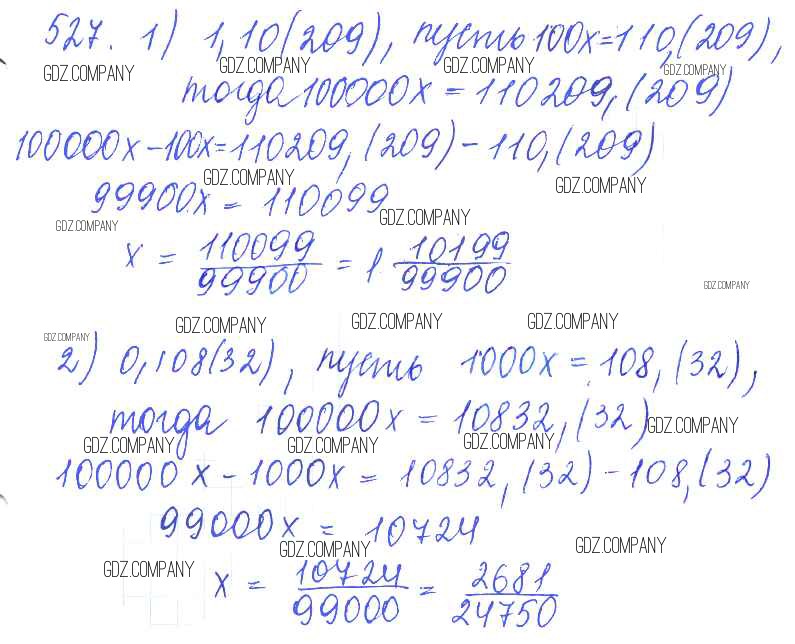 527. 1) 1,10(209), пусть 100x=110,(209),
GDZ.COMPANY GDZ.COMPANY GDZ.COMPANY GDZ.COMPANY
тогда 100000x = 110209,(209)
100000x-100x=110209,(209)-110,(209)
GDZ.COMPANY GDZ.COMPANY
99900x = 110099
GDZ.COMPANY GDZ.COMPANY
x = 110099/99900 = 1 10199/99900
GDZ.COMPANY
GDZ.COMPANY GDZ.COMPANY GDZ.COMPANY GDZ.COMPANY
2) 0,108(32), пусть 1000x = 108,(32),
тогда 100000x = 10832,(32)
GDZ.COMPANY
GDZ.COMPANY GDZ.COMPANY GDZ.COMPANY
100000x - 1000x = 10832,(32) - 108,(32)
99000x = 10724
GDZ.COMPANY GDZ.COMPANY
GDZ.COMPANY
x = 10724/99000 = 2681/24750